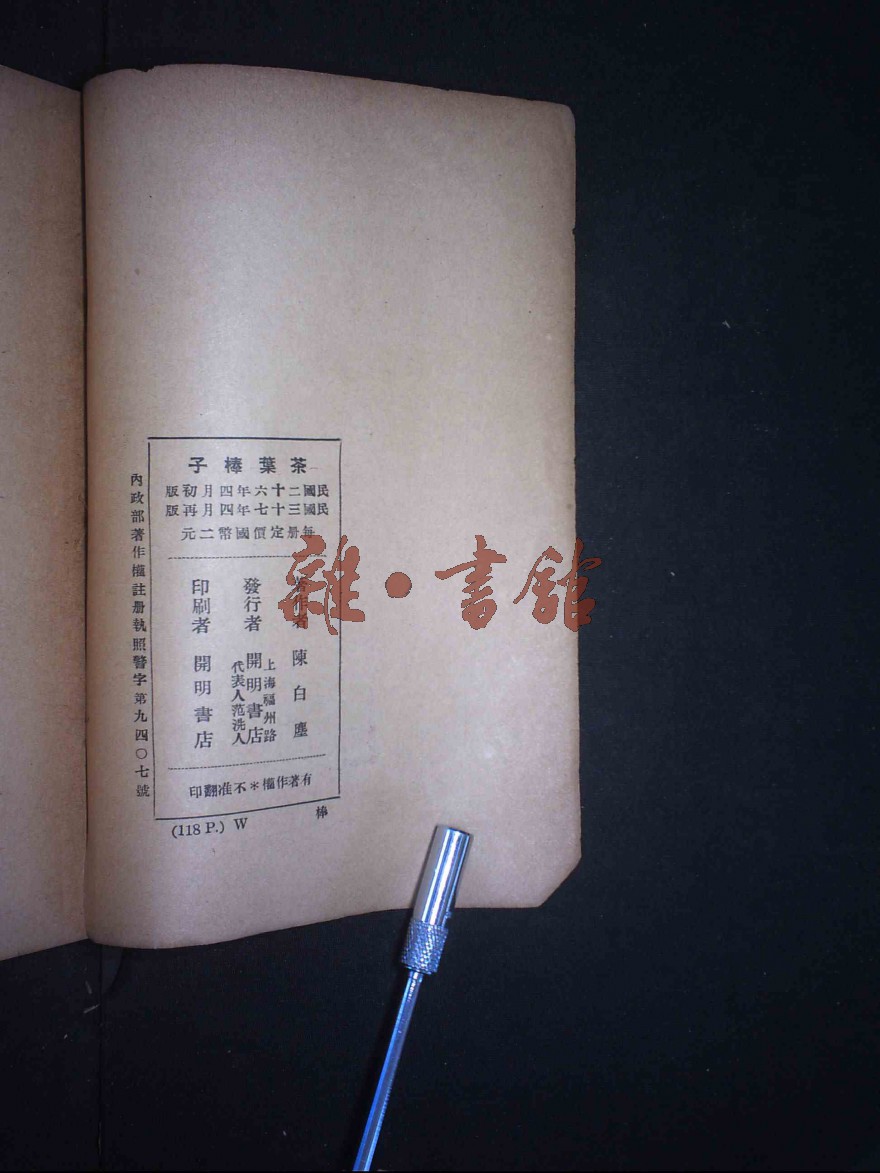 茶葉棒子
民國二十六年四月初版
民國三十七年四月再版
每册定價國幣二元
著作者 陳白塵
發行者 開明書店
上海福州路
代表人范洗人
印刷者 開明書店
有著作權＊不准翻印
內政部著作權註册執照警字第九四〇七號
(118 P.) W
棒
雜·書館